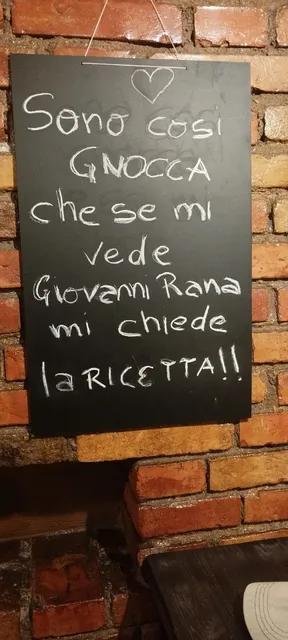 Sono così
GNOCCA
che se mi
vede
Giovanni Rana
mi chiede
la RICETTA!!